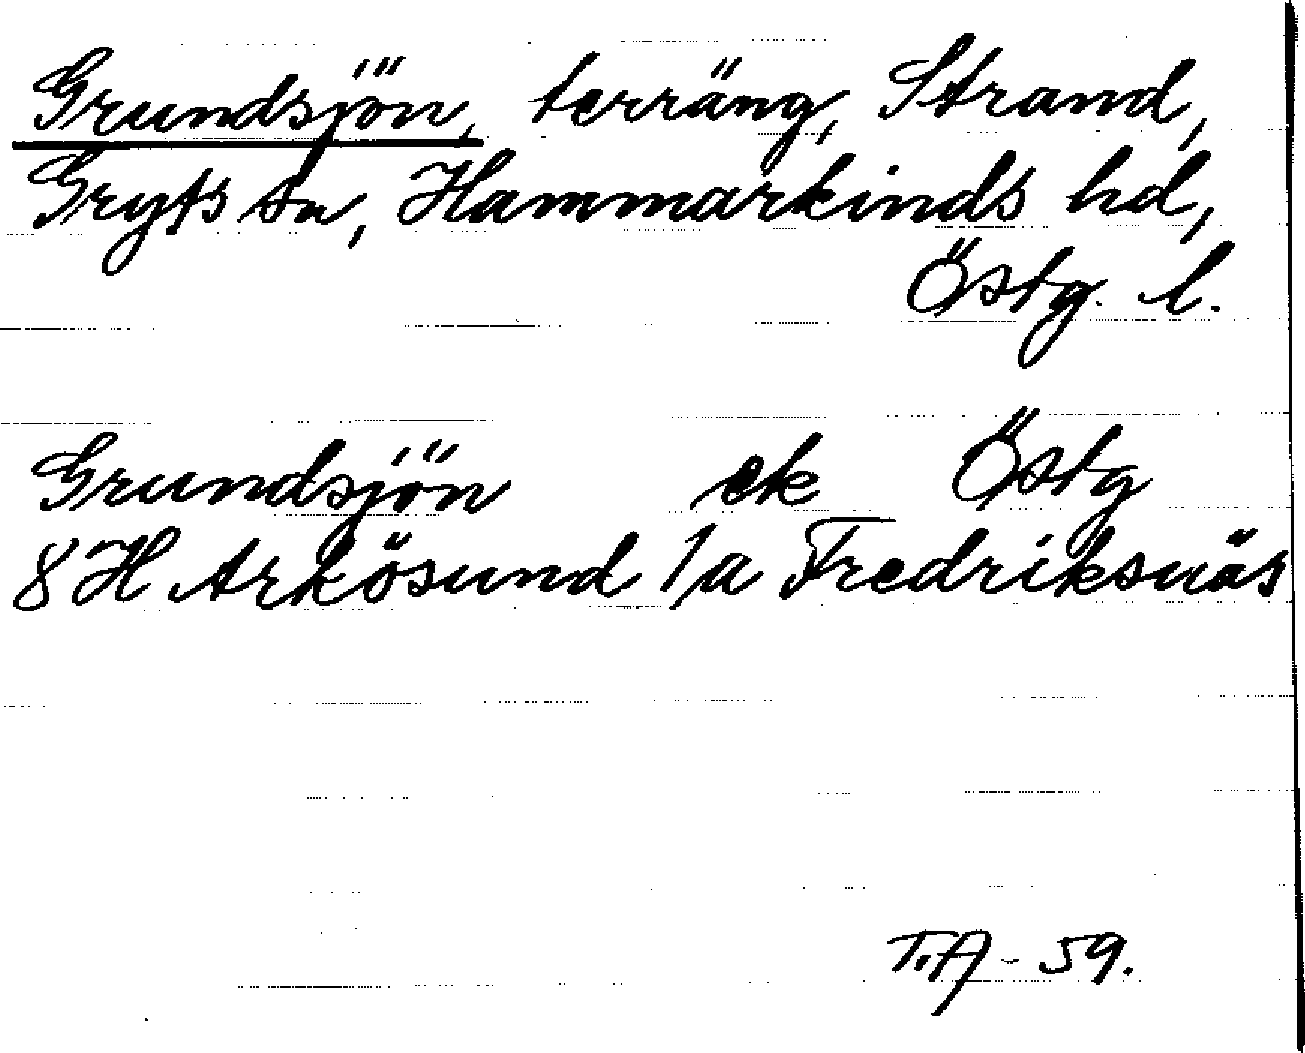 Grundsjön, terräng, Strand,
Gryts sn, Hammarkinds hd,
Östg. l.
Grundsjön ek Östg
8H Arkösund 1a Fredriksnäs
T.A - 59.